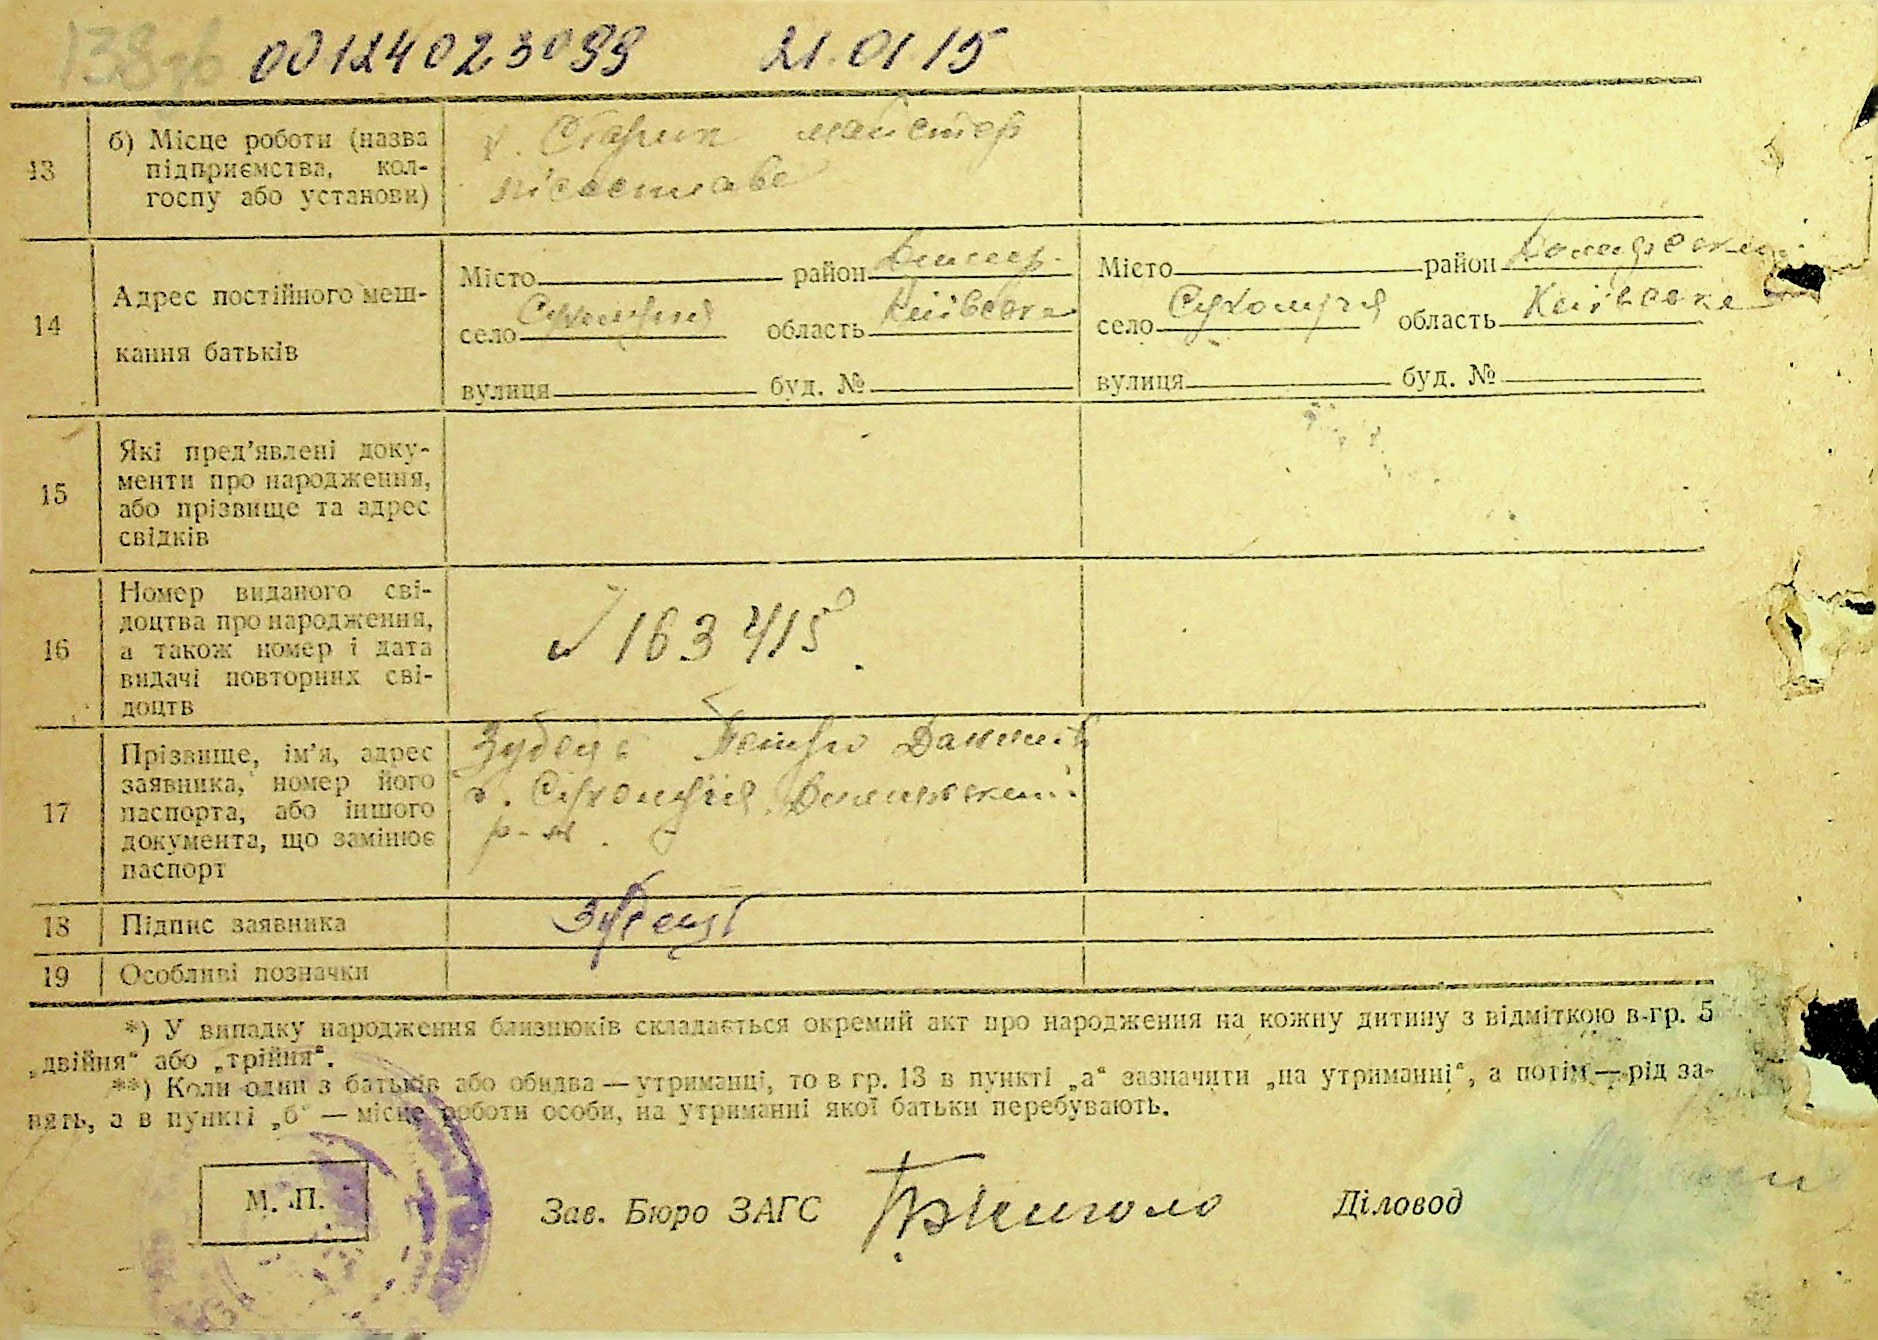 138зв 00124023099 21.01.15
13 б) Місце роботи (назва
підприємства, кол-
госпу або установи)
майстер
14 Адрес постійного меш-
кання батьків
Місто район Димер.
село Сухолуччя область Київська
вулиця буд. №
Місто район
село Сухолуччя область Київська
вулиця буд. №
15 Які пред'явлені доку-
менти про народження,
або прізвище та адрес
свідків
16 Номер виданого сві-
доцтва про народження,
а також номер і дата
видачі повторних сві-
доцтв
163415
17 Прізвище, ім'я, адрес
заявника, номер його
паспорта, або іншого
документа, що замінює
паспорт
Зубець Петро
с. Сухолуччя Димерський
р-н.
18 Підпис заявника Зубець
19 Особливі позначки
*) У випадку народження близнюків складається окремий акт про народження на кожну дитину з відміткою в-гр. 5
„двійня“ або „трійня“.
**) Коли один з батьків або обидва — утриманці, то в гр. 13 в пункті „а“ зазначити „на утриманні“, а потім — рід за-
нять, а в пункті „б“ — місце роботи особи, на утриманні якої батьки перебувають.
М. П. Зав. Бюро ЗАГС Діловод